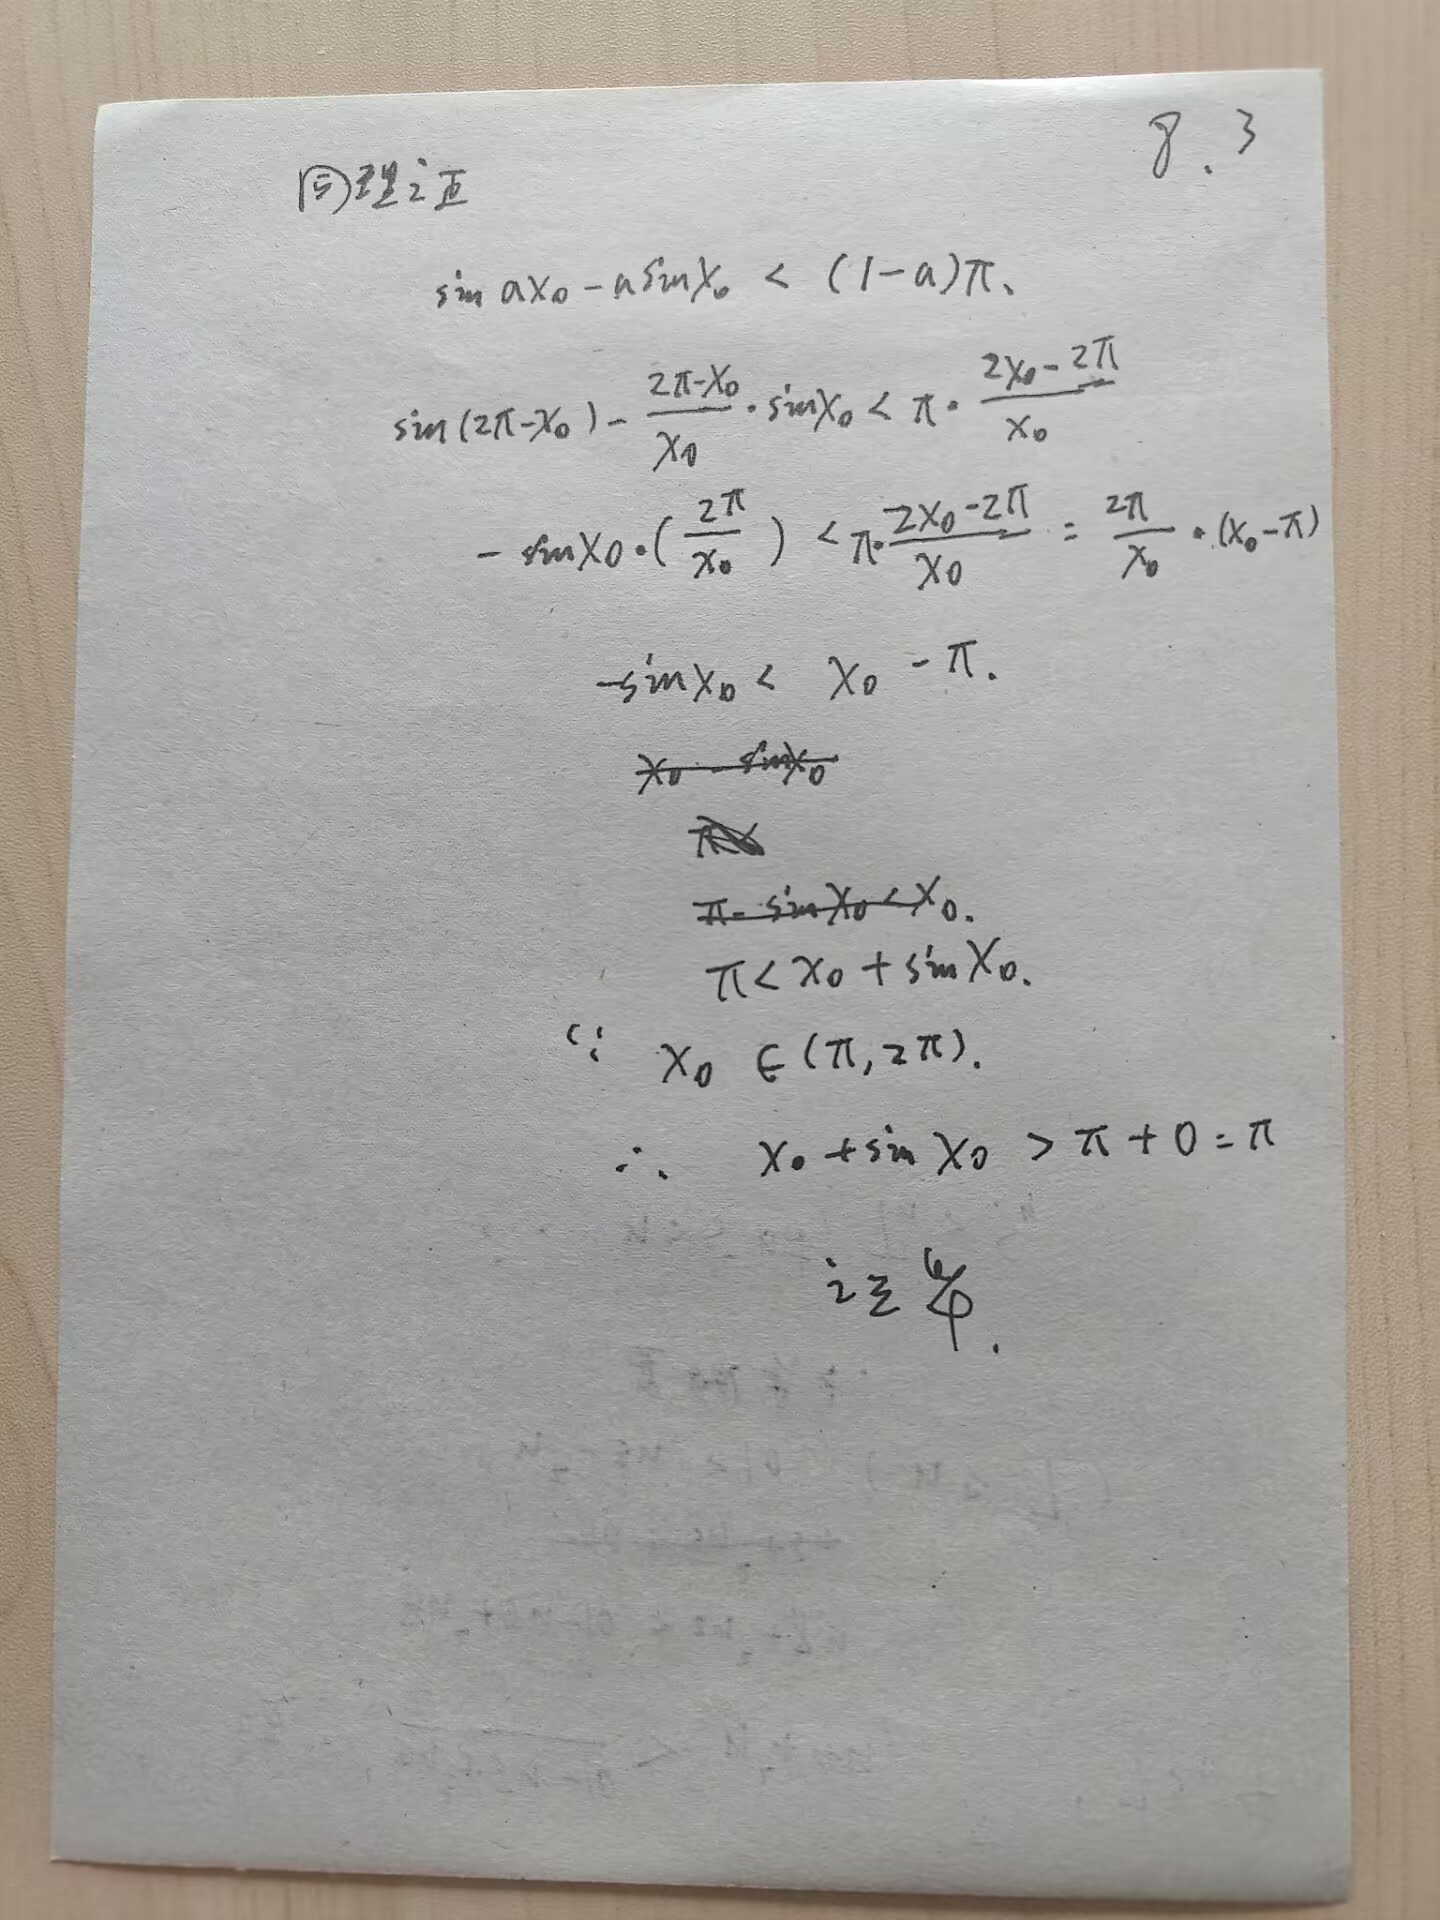 8.3
同理证
sin ax₀ - a sinx₀ < (1-a)π、
sin(2π-x₀) - \frac{2π-x₀}{x₀} · sinx₀ < π · \frac{2x₀-2π}{x₀}
- sinx₀·(\frac{2π}{x₀}) < π·\frac{2x₀-2π}{x₀} = \frac{2π}{x₀} · (x₀-π)
-sinx₀ < x₀ - π.
x₀ - sinx₀
π
π- sinx₀ < x₀.
π < x₀ + sin x₀.
∵ x₀ ∈ (π, 2π).
∴ x₀ + sin x₀ > π + 0 = π
证毕.